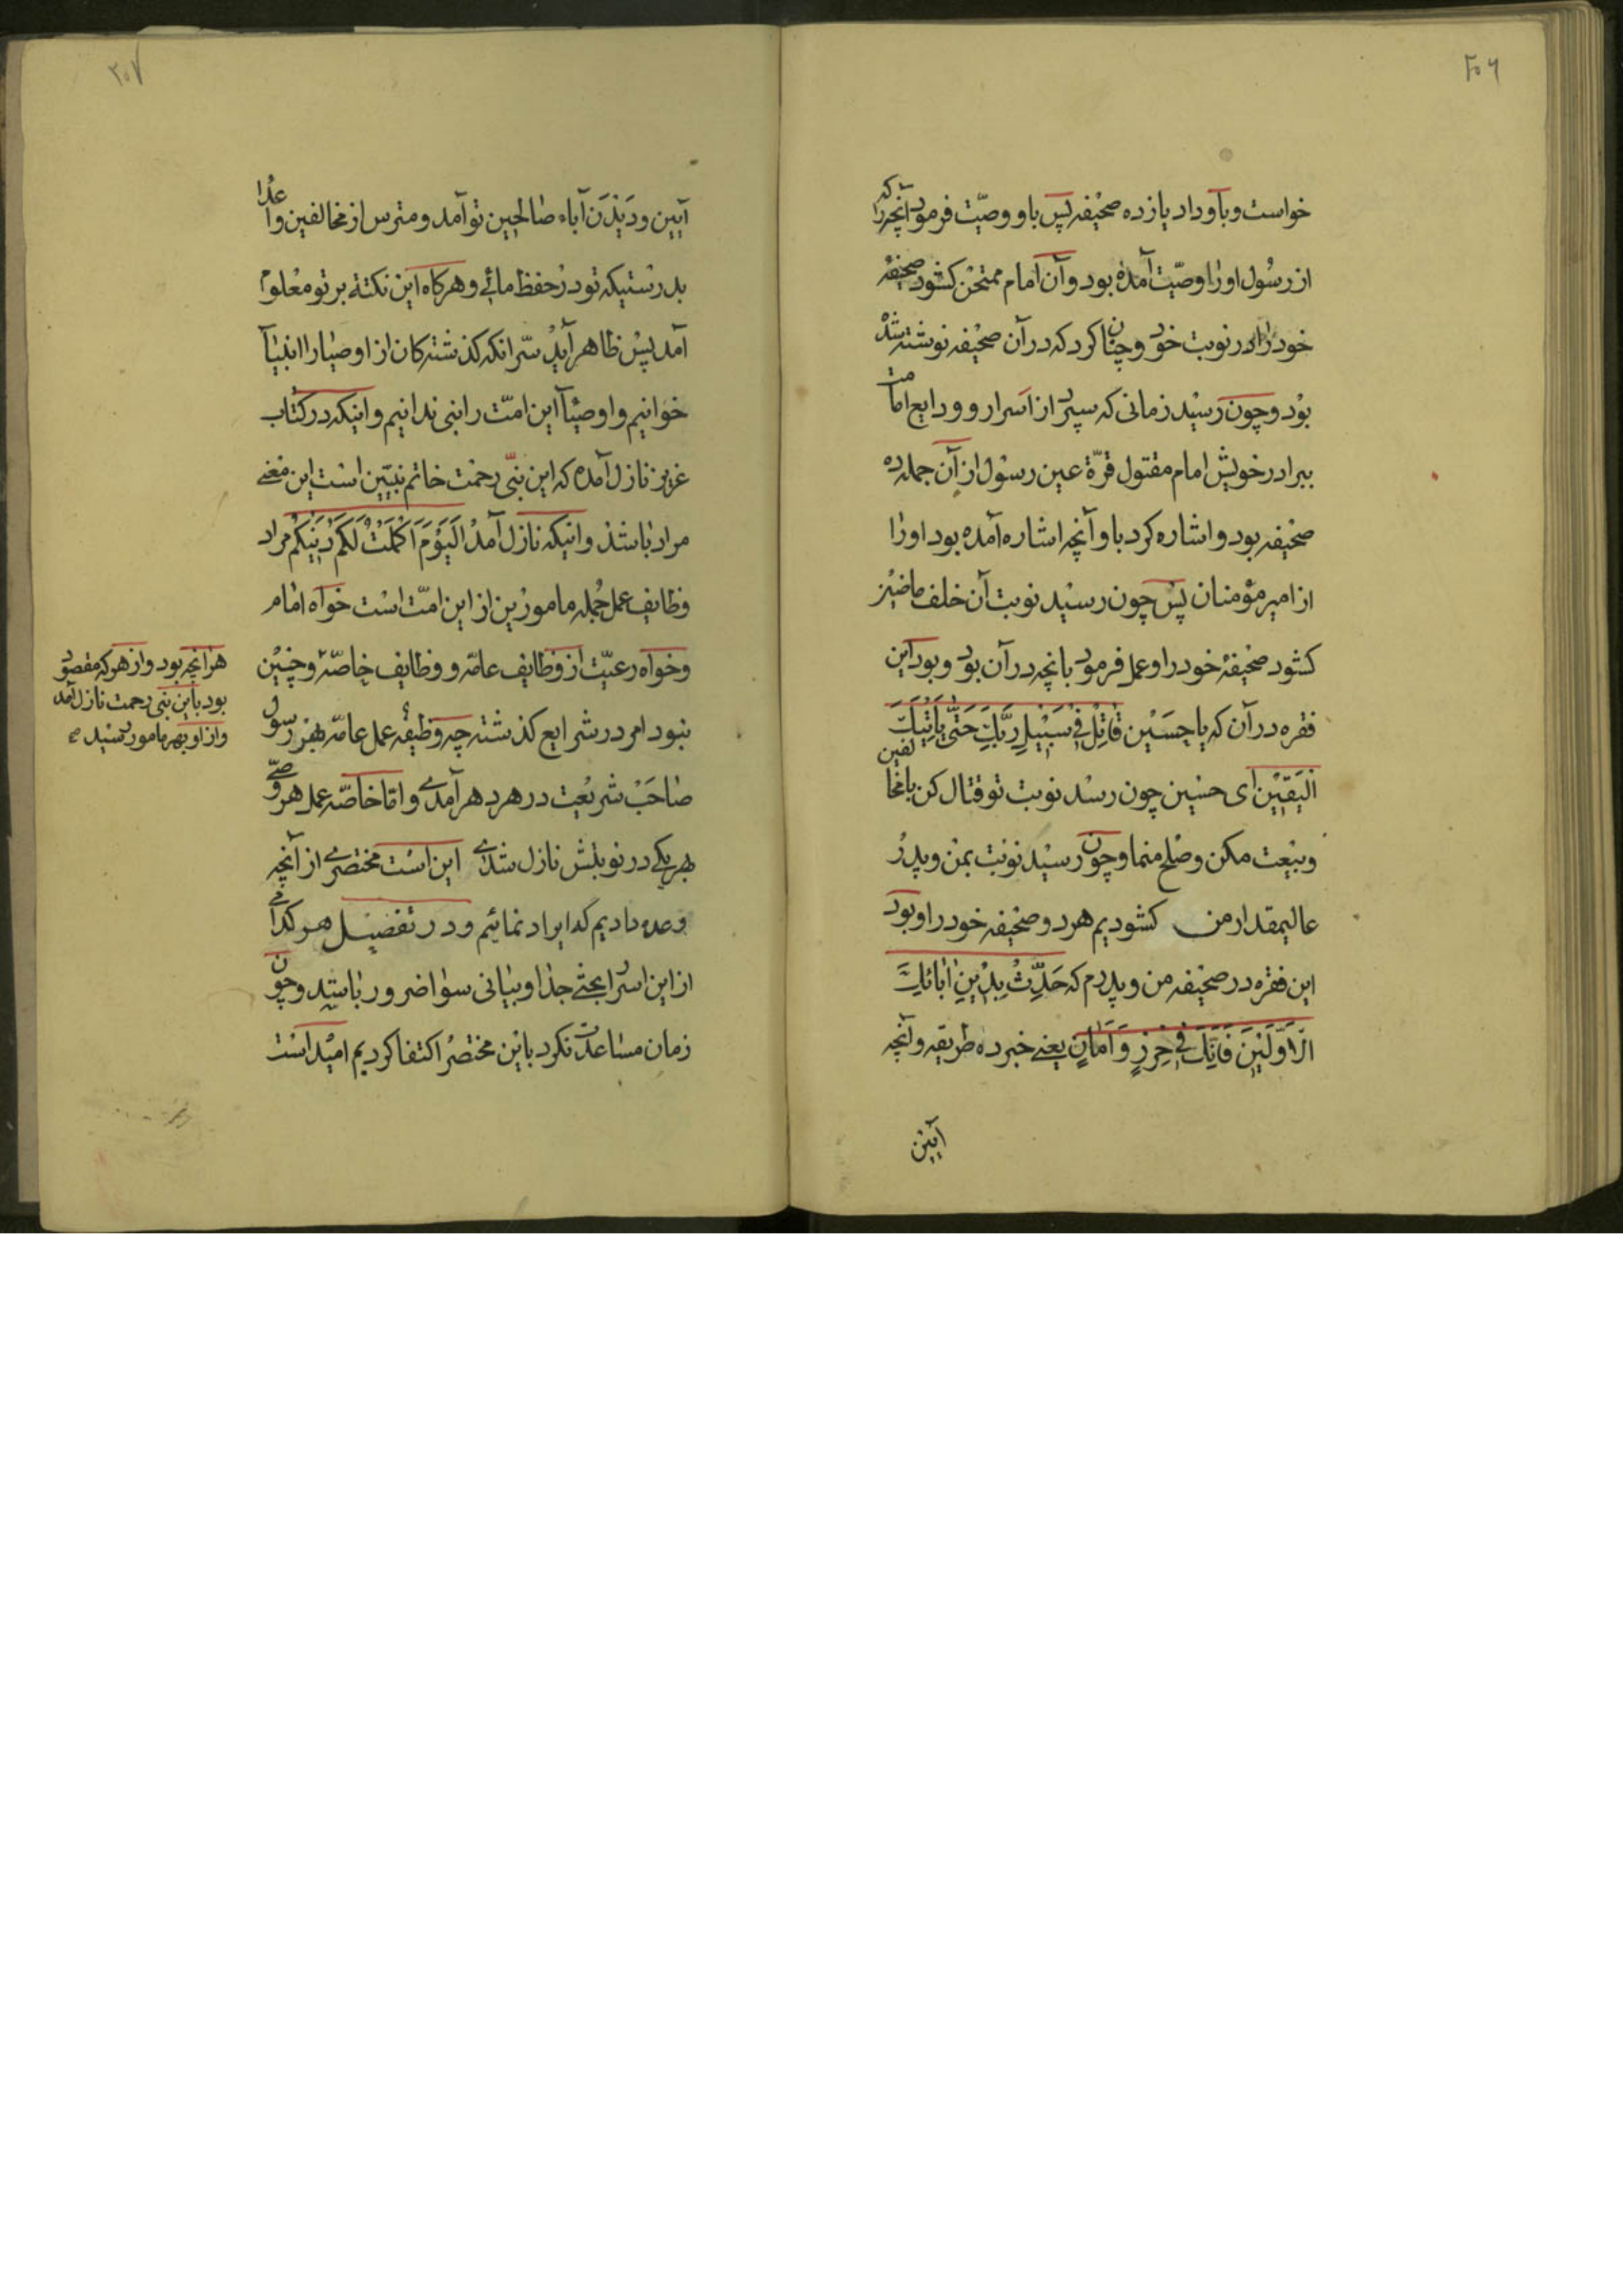 ۲۰۶
خواست و باو داد یازده صحیفه پس باو وصیّت فرمود آنچه را که
از رسول او را وصیّت آمده بود و آن امام ممتحن کشود صحیفه
خود را در نوبت خود و چنان کرد که در آن صحیفه نوشته شده
بود و چون رسید زمانی که سپرد از اسرار و ودایع امامت
ببرادر خویش امام مقتول قرّة عین رسول از آن جمله ده
صحیفه بود و اشاره کرد باو آنچه اشاره آمده بود او را
از امیر مؤمنان پس چون رسید نوبت آن خلف ماضین
کشود صحیفهٔ خود را و عمل فرمود بانچه در آن بود و بود این
فقره در آن که یا حسین قاتِلْ فی سَبیلِ رَبِّكَ حَتّی یَأتیَكَ
الیَقین ای حسین چون رسد نوبت تو قتال کن با مخالفین
و بیعت مکن و صلح منما و چون رسید نوبت بمن و پدر
عالیمقدار من کشودیم هر دو صحیفه خود را و بود
این فقره در صحیفه من و پدرم که حَدِّثْ بِدینِ اٰبائِكَ
الاَوَّلینَ فَاِنَّكَ فی حِرْزٍ وَ اَمانٍ یعنی خبر ده طریقه و آنچه
آیین
۲۰۷
آیین و دَیْدَن آباء صالحین تو آمد و مترس از مخالفین و اعدا
بدرستیکه تو در حفظ مائی و هرکاه این نکته بر تو معلوم
آمد پس ظاهر آید سرّ انکه کذشتهکان از اوصیا را انبیآ
خوانیم و اوصیآ این امّت را نبی ندانیم و اینکه در کتاب
عزیز نازل آمده که این نبّی رحمت خاتم نبیّین است این معنی
مراد باشد و اینکه نازل آمد اَلْیَوْمَ اَکْمَلْتُ لَکُمْ دینَکُمْ مراد
وظایف عمل جمله مامورین از این امّت است خواه امام
و خواه رعیّت از وظایف عامّه و وظایف خاصّه و چنین
نبود امر در شرایع کذشته چه وظیفهٔ عمل عامّه بهر رسول
صاحب شریعت در هر دهر آمدی و امّا خاصّه عمل هر وصّی
بهر یکی در نوبتش نازل شدی این است مختصری از آنچه
وعده دادیم که ایراد نمائیم و در تفصیل هر کدامی
از این اسرار بحثی جدا و بیانی سوا ضرور باشد و چون
زمان مساعدت نکرد باین مختصر اکتفا کردیم امید است
هر آنچه بود و از هر که مقصود
بود باین نبی رحمت نازل آمد
و از او بهر مامور رسید